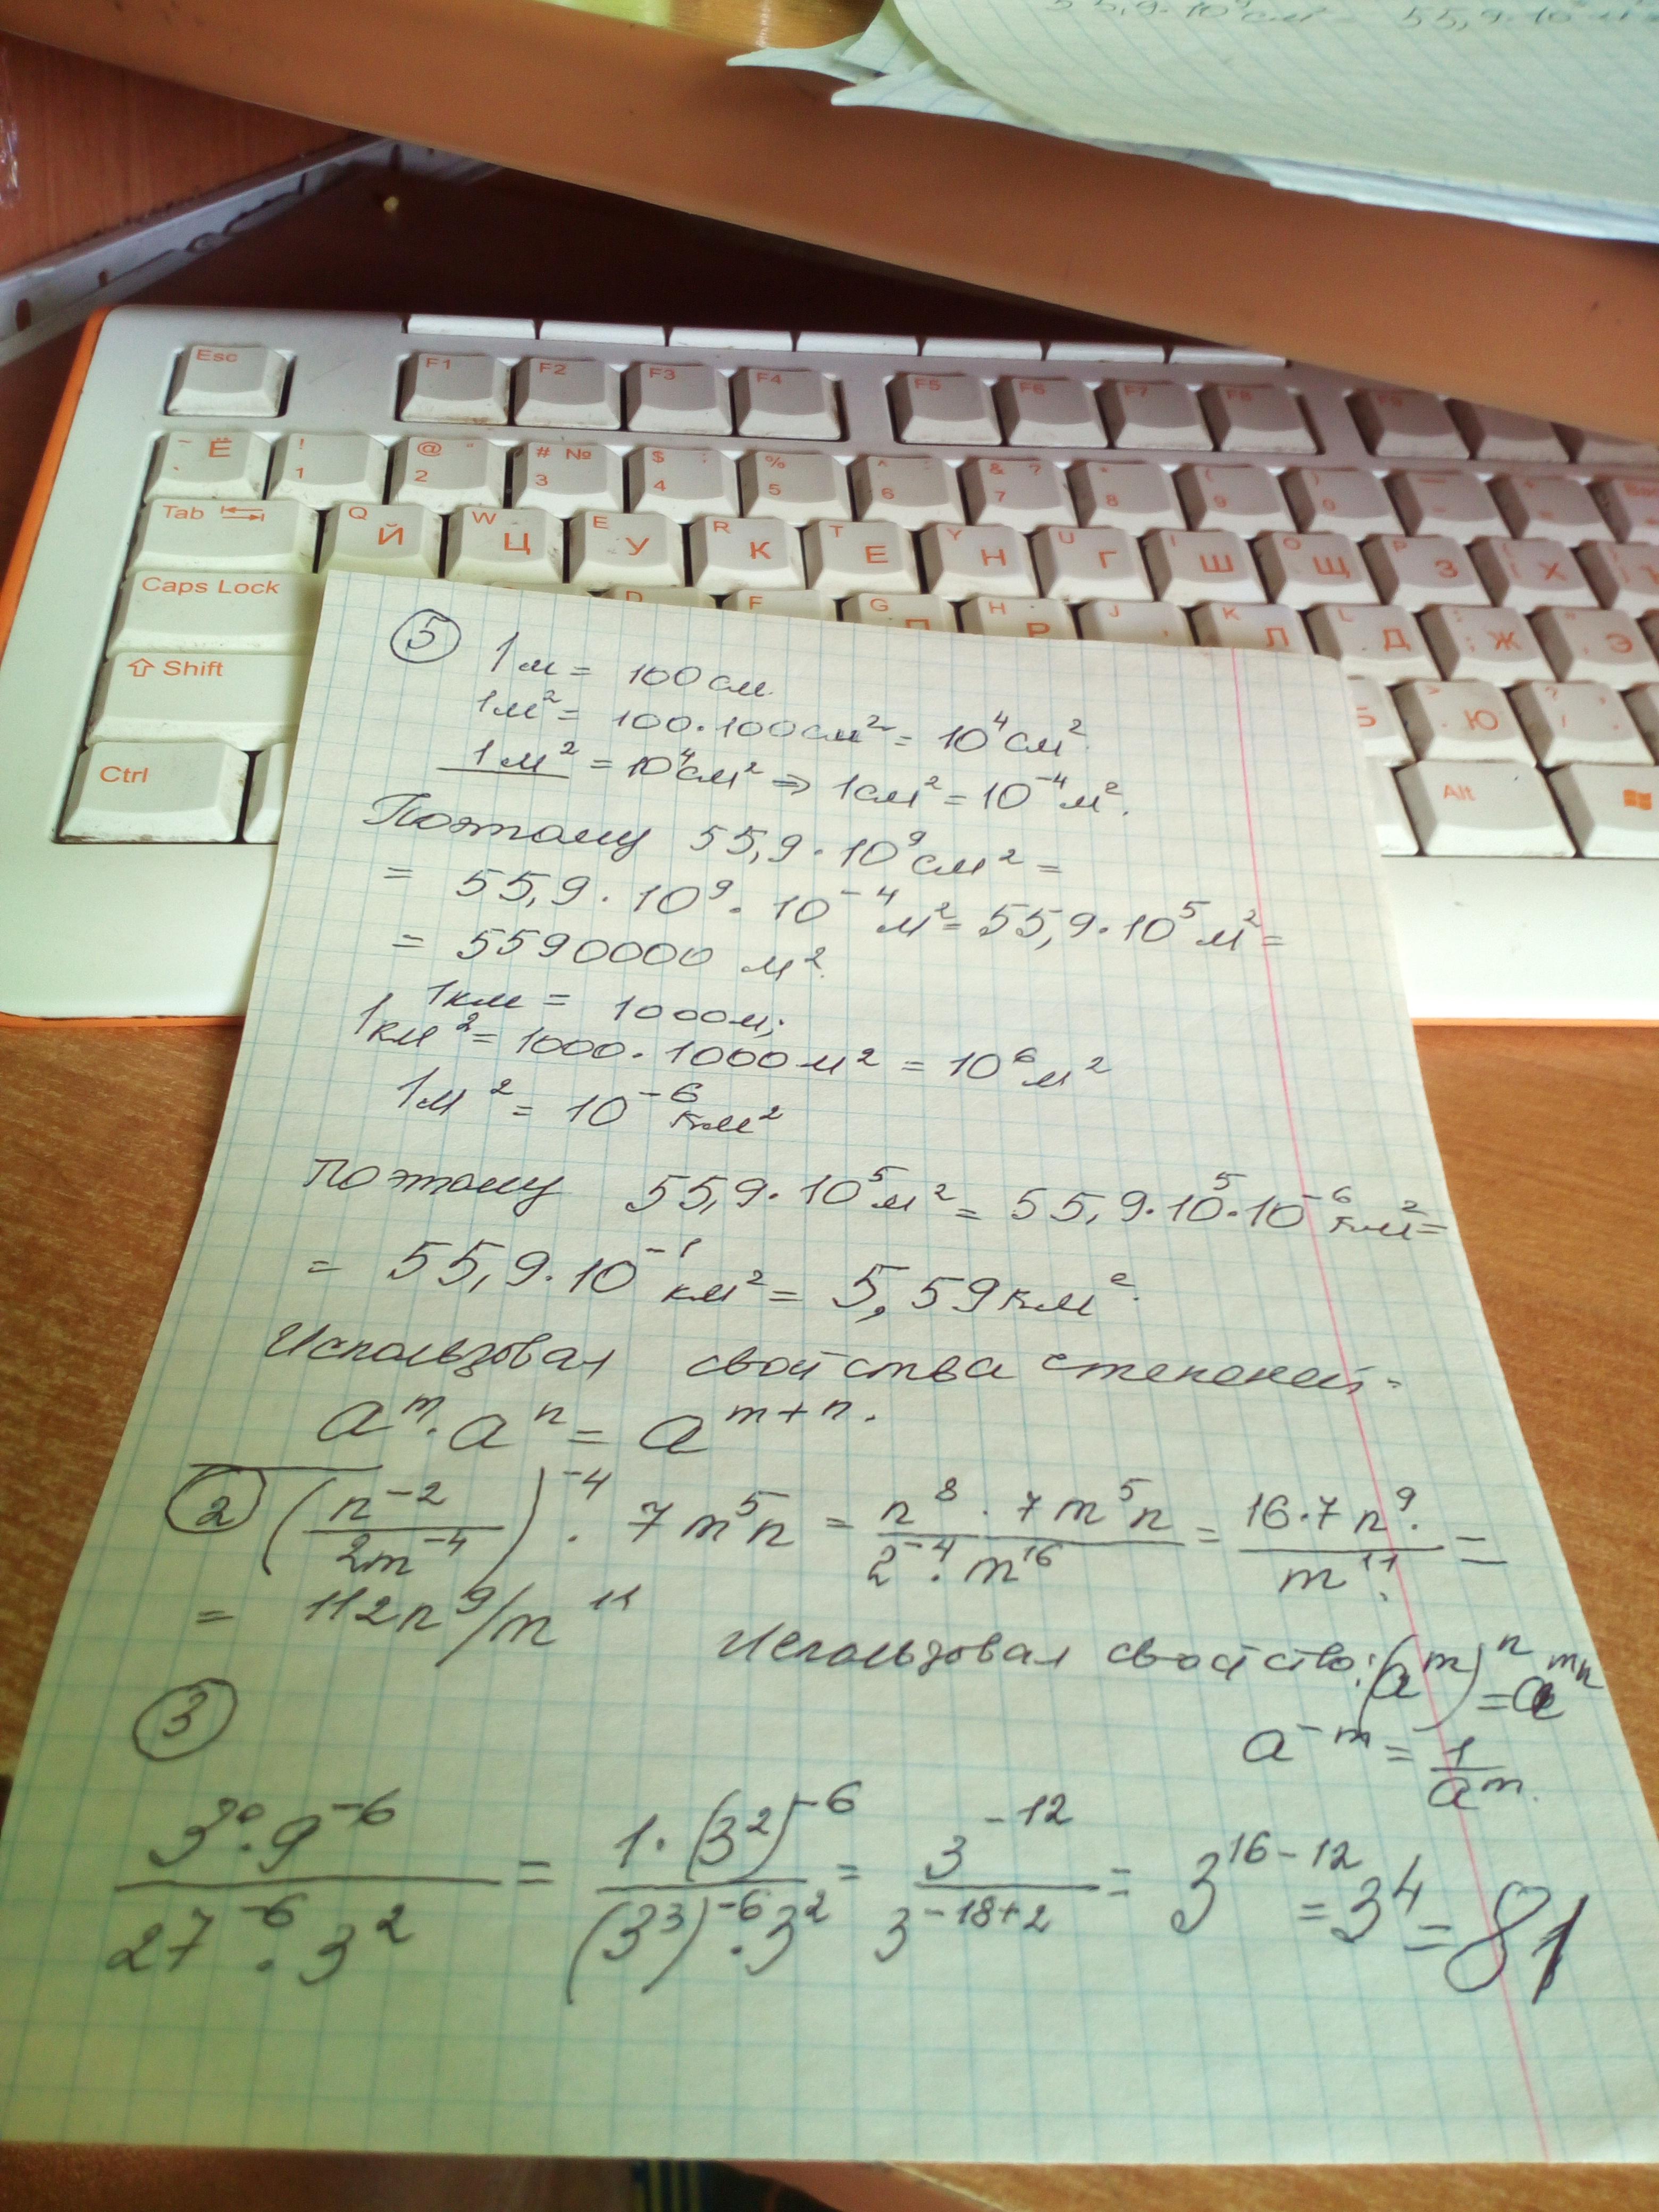 55,9·10⁹см² 55,9·10
Esc F1 F2 F3 F4 F5 F6 F7 F8 F9
~ Ё ` ! 1 @ " 2 # № 3 $ ; 4 % 5 ^ : 6 & ? 7 * 8 ( 9 ) 0
Tab Q Й W Ц E У R К T Е Y Н U Г I Ш O Щ P З { [ Х
Caps Lock D F G П H Р J К Л L Д : ; Ж " ' Э
Shift Б > . Ю ? /
Ctrl Alt
⑤ 1м = 100см.
1м² = 100·100см² = 10⁴см².
1м² = 10⁴см² ⇒ 1см² = 10⁻⁴м².
Поэтому 55,9·10⁹см² =
= 55,9·10⁹·10⁻⁴м² = 55,9·10⁵м² =
= 5590000 м².
1км = 1000м;
1км² = 1000·1000м² = 10⁶м²
1м² = 10⁻⁶км²
Поэтому 55,9·10⁵м² = 55,9·10⁵·10⁻⁶км² =
= 55,9·10⁻¹км² = 5,59км².
Использовал свойства степеней-
aᵐ·aⁿ = aᵐ⁺ⁿ.
② (n⁻²/2m⁻⁴)⁻⁴ · 7m⁵n = n⁸·7m⁵n/2⁻⁴·m¹⁶ = 16·7n⁹·/m¹¹ =
= 112n⁹/m¹¹ Использовал свойство: (aᵐ)ⁿ = aᵐⁿ
a⁻ᵐ = 1/aᵐ.
③
3⁰·9⁻⁶/27⁻⁶·3² = 1·(3²)⁻⁶/(3³)⁻⁶·3² = 3⁻¹²/3⁻¹⁸⁺² = 3¹⁶⁻¹² = 3⁴ = 81